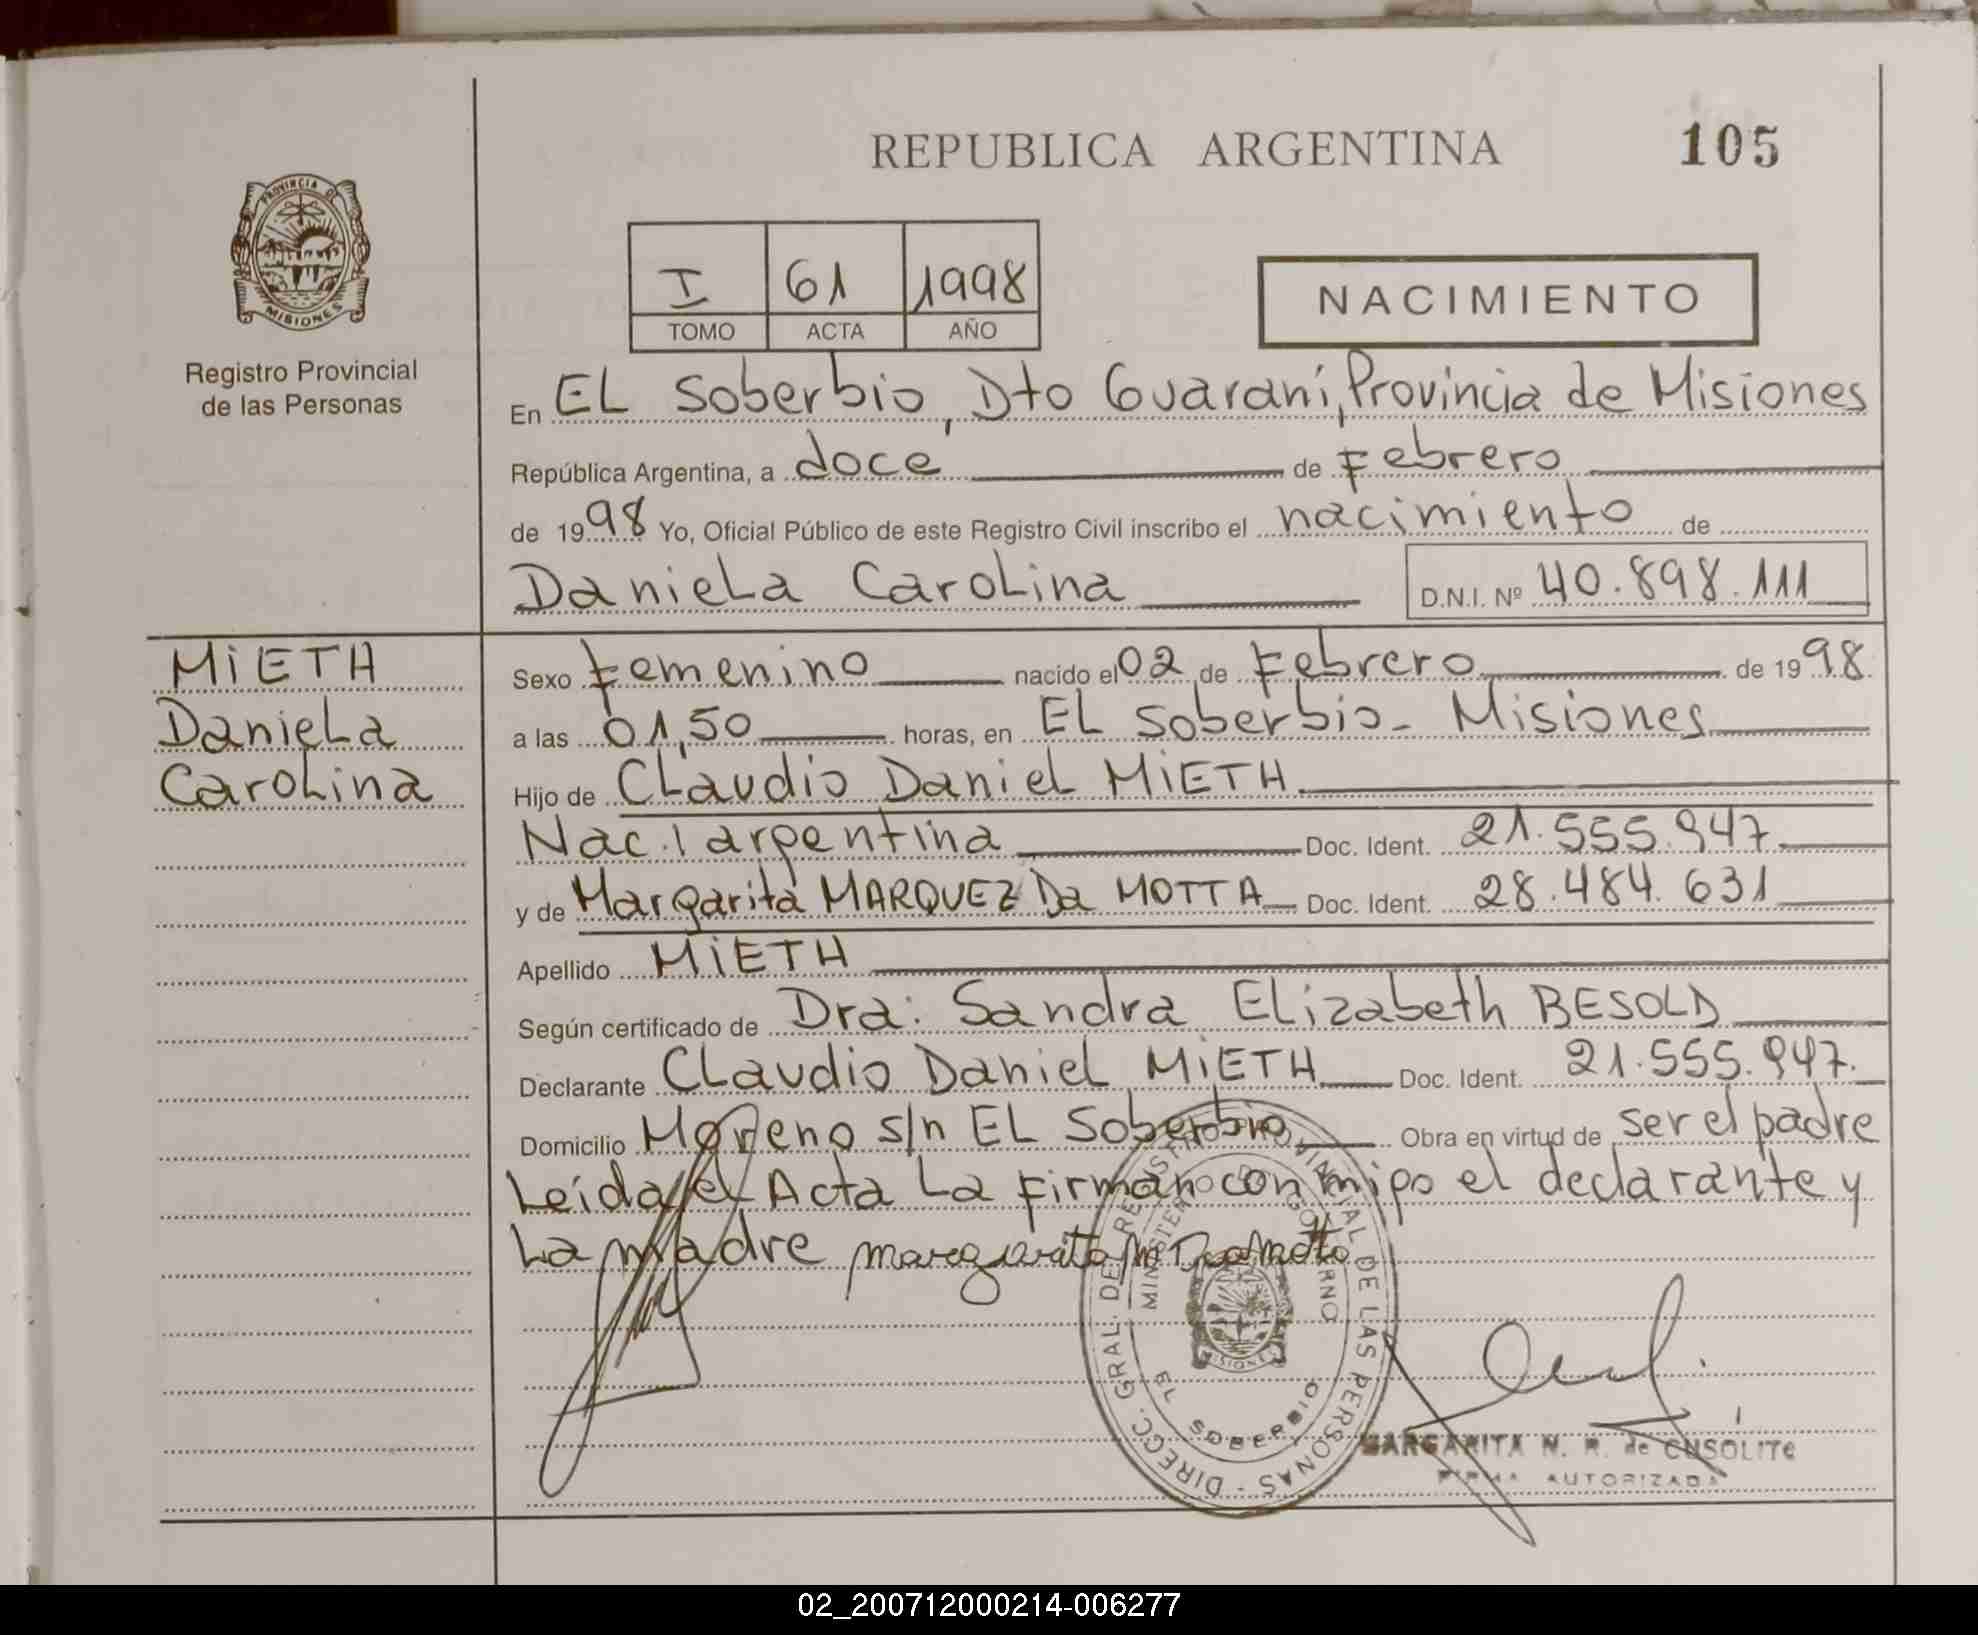 REPUBLICA ARGENTINA
105
PROVINCIA DE
MISIONES
Registro Provincial
de las Personas
I 61 1998
TOMO ACTA AÑO
NACIMIENTO
En EL Soberbio, Dto Guaraní, Provincia de Misiones
República Argentina, a doce de Febrero
de 1998 Yo, Oficial Público de este Registro Civil inscribo el nacimiento de
Daniela Carolina D.N.I. Nº 40.898.111
MiETH
Daniela
Carolina
Sexo Femenino nacido el 02 de Febrero de 1998
a las 01,50 horas, en EL Soberbio - Misiones
Hijo de Claudio Daniel MiETH
Nac. argentina Doc. Ident. 21.555.947
y de Margarita MARQUEZ Da MOTTA Doc. Ident. 28.484.631
Apellido MiETH
Según certificado de Dra: Sandra Elizabeth BESOLD
Declarante Claudio Daniel MiETH Doc. Ident. 21.555.947.
Domicilio Moreno s/n EL Soberbio Obra en virtud de ser el padre
Leída el Acta La Firman conmigo el declarante y
La madre margarita m Da Motta
DIRECC. GRAL. DEL REGISTRO PROVINCIAL DE LAS PERSONAS -
MINISTERIO DE GOBIERNO
MISIONES
EL SOBERBIO
MARGARITA N. R. de CUSOLITO
FIRMA AUTORIZADA
02_200712000214-006277